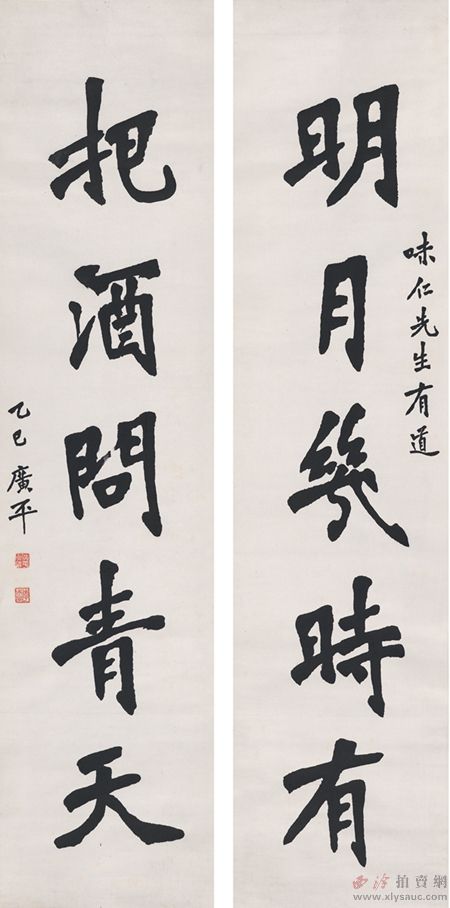 明月幾時有
味仁先生有道
把酒問青天
乙巳 廣平
西泠拍賣網
www.xlysauc.com